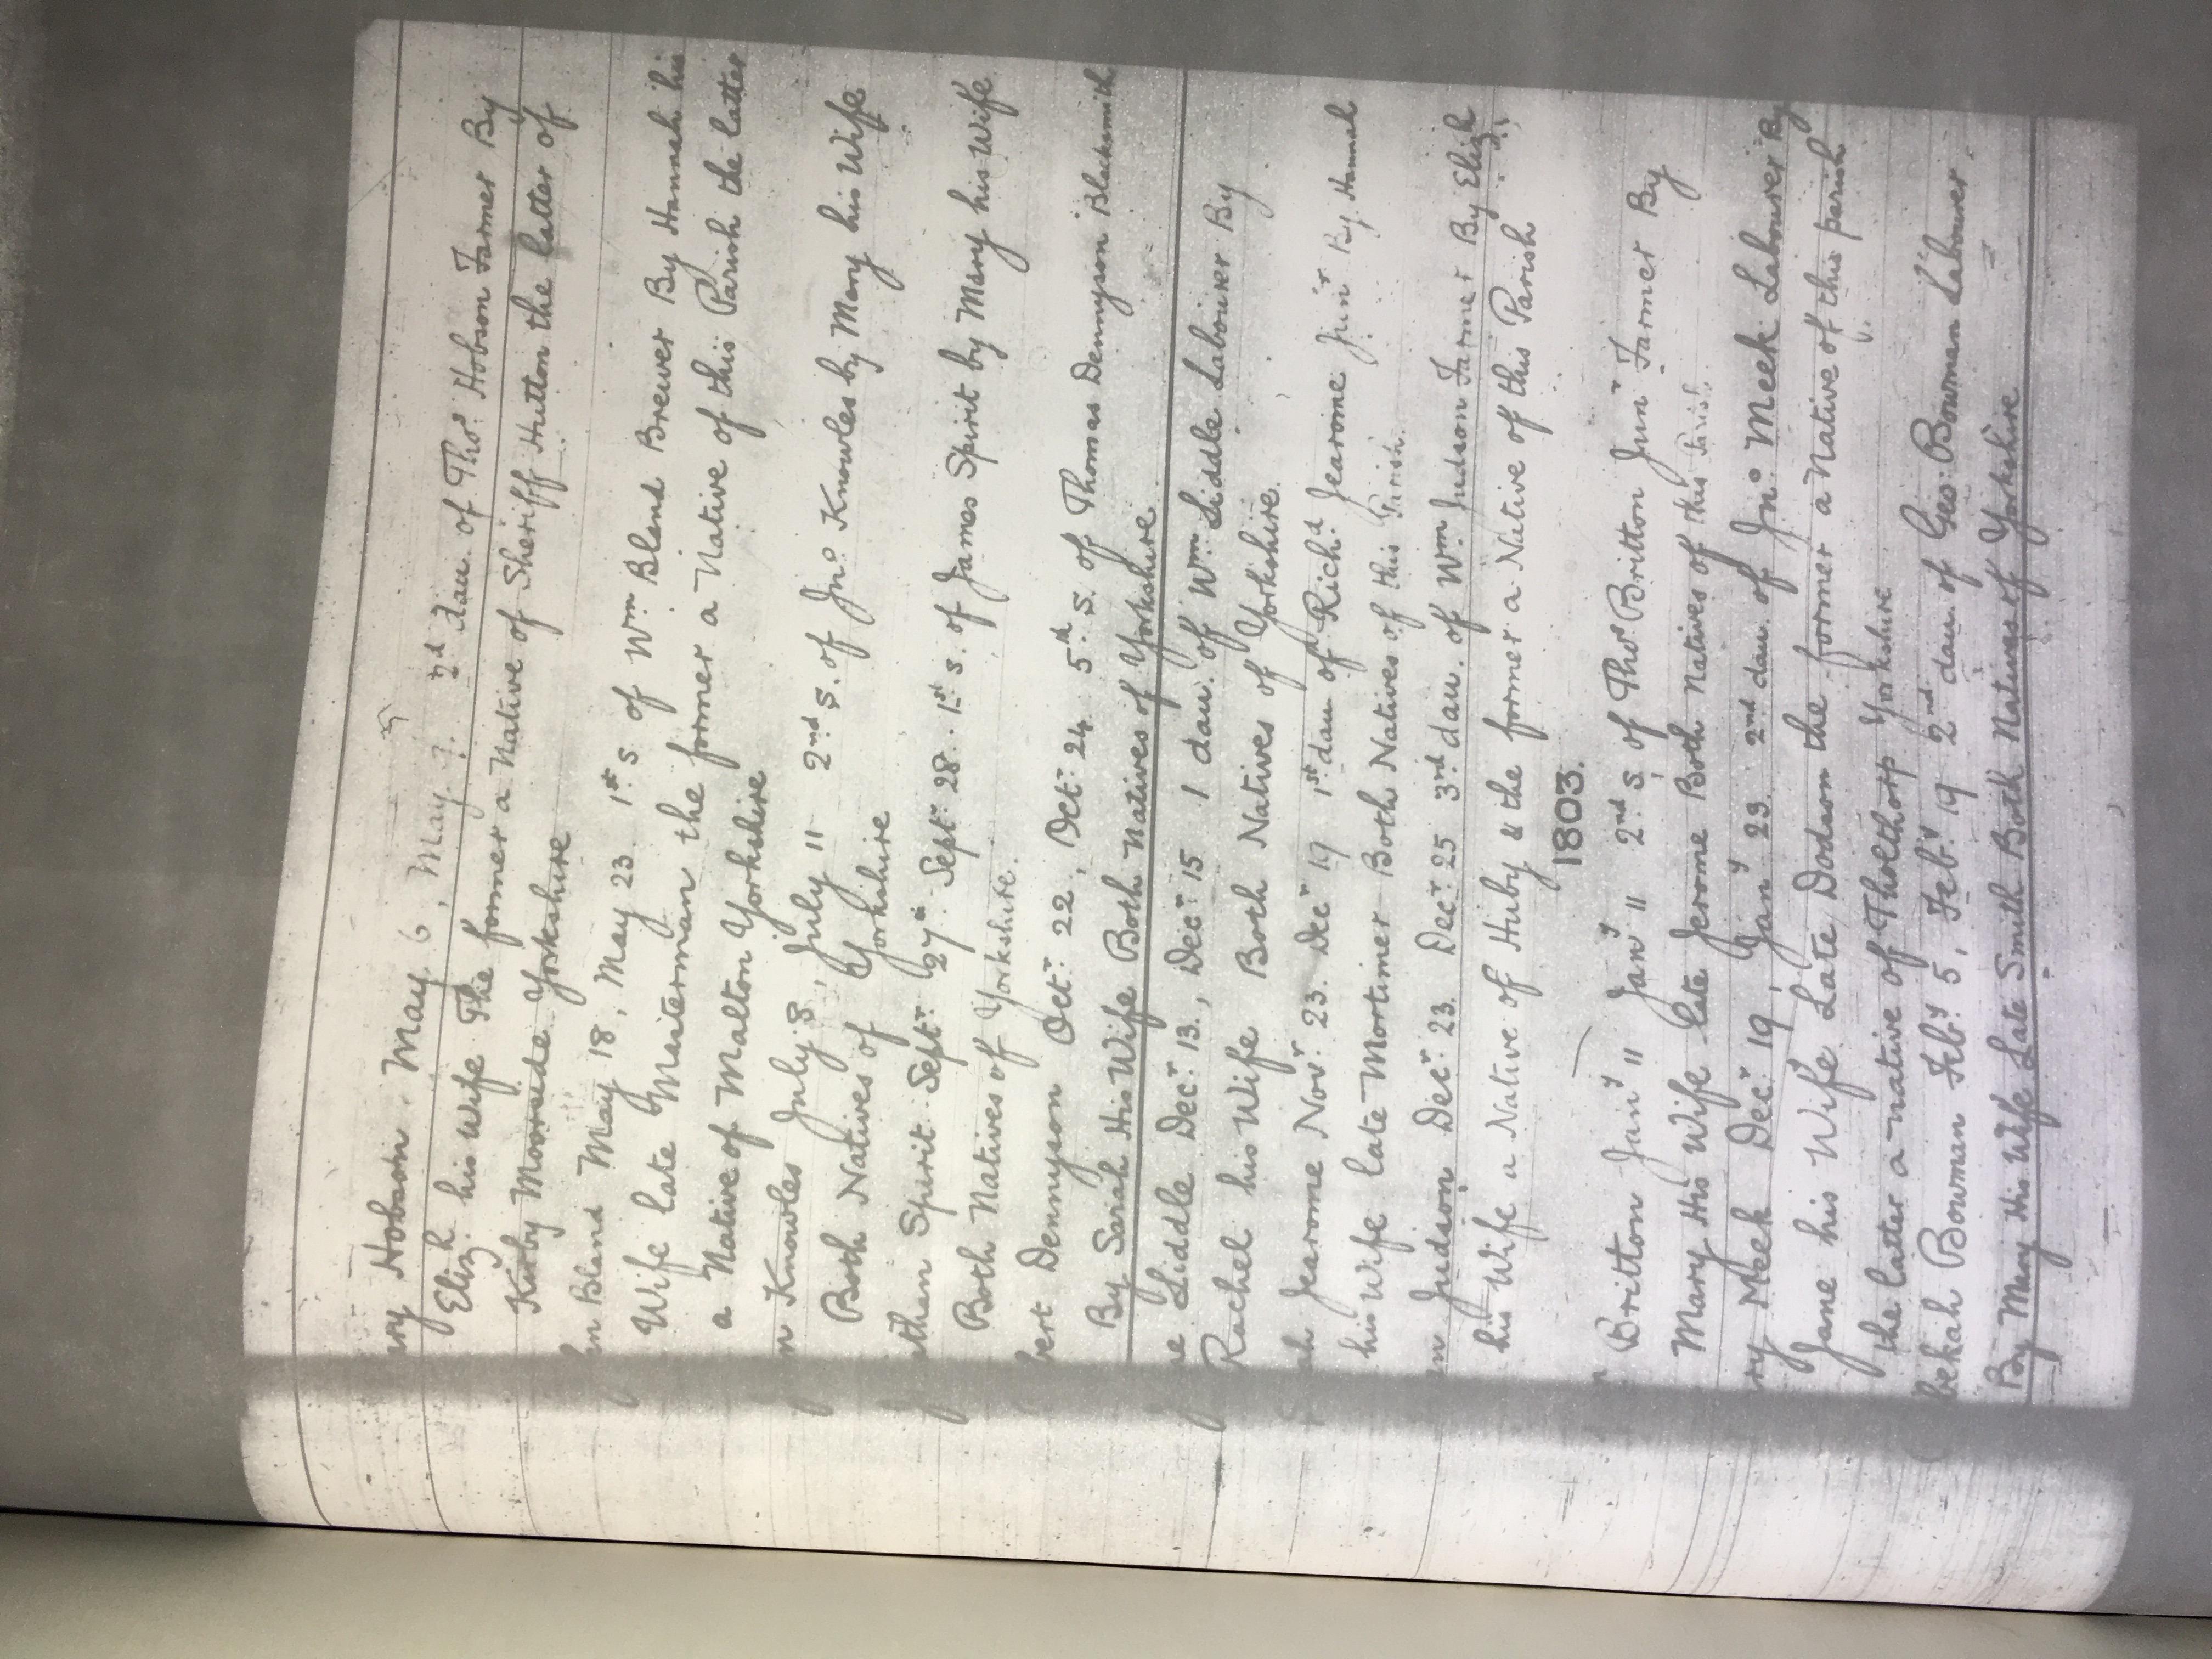 ary Hobson. May 6, May 7. 2nd dau. of Thos. Hobson Farmer By
Eliz.h his Wife The former a Native of Sheriff Hutton the latter of
Kirby Moorside Yorkshire
hn Bland May 18, May 23. 1st s of Wm. Bland Brewer By Hannah his
Wife late Masterman the former a Native of this Parish the latter
a Native of Malton Yorkshire
n Knowles July 8, July 11 2nd s. of Jno. Knowles by Mary his Wife
Both Natives of Yorkshire
athan Spirit. Septr. 27th. Septr. 28.. 1st s. of James Spirit by Mary his Wife
Both Natives of Yorkshire.
bert Dennyson Octr. 22, Octr. 24 5th s. of Thomas Dennyson Blacksmith
By Sarah His Wife Both Natives of Yorkshire
ne Liddle Decr. 13., Decr. 15 1 dau. of Wm. Liddle Labourer By
Rachel his Wife Both Natives of Yorkshire.
ah Jearome Novr. 23. Decr 19 1st dau of Richd. Jearome Junr By Hannah
his Wife late Mortimer Both Natives of this Parish.
n Judson Decr. 23. Decr. 25 3rd dau. of Wm. Judson Farmer By Eliz.h
his Wife a Native of Huby & the former a Native of this Parish
1803.
Britton Jany 11 Jany 11 2nd s of Thos. Britton Junr Farmer By
Mary His Wife late Jerome Both Natives of this Parish
ry Meek Decr. 19, Jany 23. 2nd dau. of Jno. Meek Labourer By
Jane his Wife Late Dodson the former a Native of this parish
the latter a native of Tholthorp Yorkshire
bekah Bowman Feby. 5, Feby. 19 2nd dau. of Geo. Bowman Labourer
By Mary His Wife Late Smith Both Natives of Yorkshire